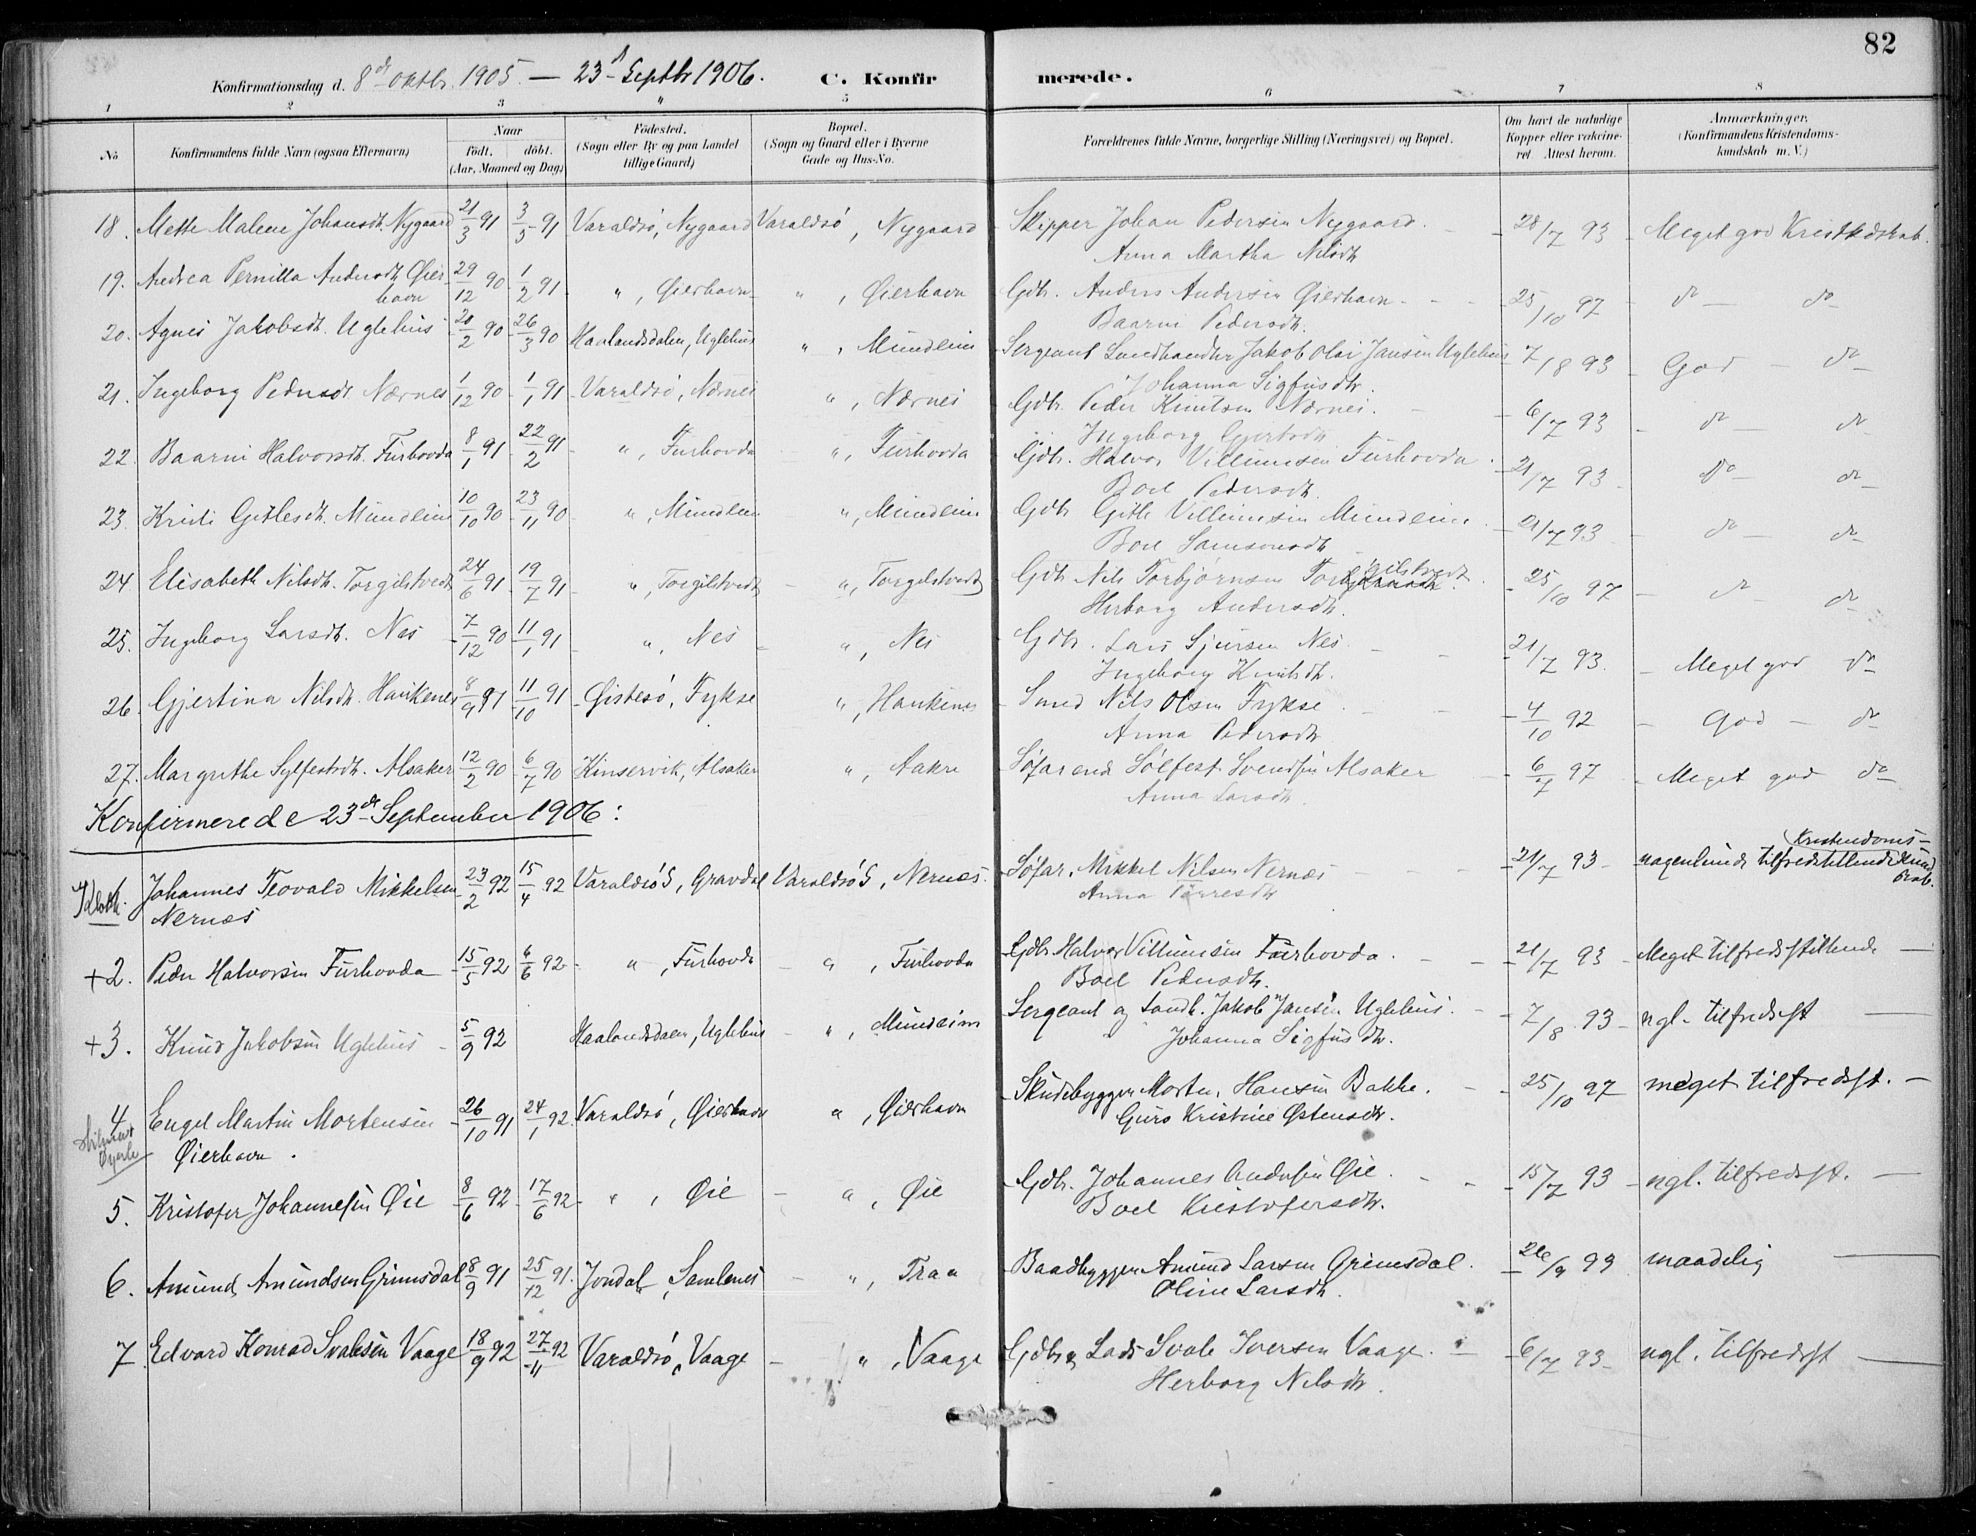 82
Konfirmationsdag d. 8de oktbr. 1905. — 23d Septbr 1906. C. Konfirmerede.
1 2 3 " 5 6 7 8
No Konfirmandens fulde Navn (ogsaa Efternavn) Naar født. døbt. (Aar, Maaned og Dag) Fødested. (Sogn eller By og paa Landet tillige Gaard) Bopæl. (Sogn og Gaard eller i Byerne Gade og Hus-No. Forældrenes fulde Navne, borgerlige Stilling (Næringsvei) og Bopæl. Om havt de naturlige Kopper eller vakcineret Attest herom. Anmærkninger. (Konfirmandens Kristendomskundskab m. V.)
18. Mette Malene Johansdt. Nygaard 21/3 91 3/5 91 Varaldsö, Nygaard Varaldsö, Nygaard Skipper Johan Pedersen Nygaard. 28/7 93 Meget god Kristdskab.
Anna Martha Nilsdtr
19. Andrea Pernilla Andersdt. Øierhavn 29/12 90 1/2 91 ", Øierhavn ", Øierhavn Gdbr. Anders Andersen Øierhavn. 25/10 97 do — do
Baarni Pedersdtr.
20. Agnes Jakobsdt. Uglehus 20/2 90 26/3 90 Haalandsdalen, Uglehus ", Mundheim Sergeant Landhandler Jakob Olai Jansen Uglehus 7/8 93 God — do
Johanna Sigfusdtr.
21. Ingeborg Pedersdt. Nærnes 1/12 90 1/1 91 Varaldsö, Nærnes ", Nærnes Gdbr. Peder Knutsen Nærnes. 6/7 93 do — do
Ingeborg Gjertsdtr
22. Baarni Halvorsdt. Furhovda 8/1 91 22/2 91 ", Furhovda ", Furhovda Gdbr. Halvor Villumsen Furhovda 21/7 93 do — do
Boel Pedersdtr.
23. Kristi Gitlesdt. Mundheim 10/10 90 23/11 90 ", Mundheim ", Mundheim Gdbr Gitle Villumsen Mundheim 21/7 93 do — do
Boel Samsonsdtr
24. Elisabeth Nilsdt. Torgilstvedt 24/6 91 19/7 91 ", Torgilstvedt ", Torgilstvedt Gdbr Nils Torbjörnsen Torgilstvedt 25/10 97 do — do
Herborg Andersdtr.
25. Ingeborg Larsdt. Nes 7/12 90 11/1 91 ", Nes ", Nes Gdbr. Lars Sjursen Nes. 21/7 93. Meget god do
Ingeborg Knutsdtr.
26. Gjertina Nilsdt. Haukenes 8/9 91 11/10 91 Øistesö, Fykse ", Haukenes Smed Nils Olsen Fykse 4/10 92 God — do
Anna Pedersdtr
27. Margrethe Sylfestsdt. Alsaker 12/2 90 6/7 90 Kinservik, Alsaker ", Aakre Søfarende Sølfest Svendsen Alsaker 6/7 97 Meget god do
Anna Larsdtr.
Konfirmerede 23de September 1906:
Johannes Teovald Mikkelsen 23/2 92 15/4 92 VaraldsöS, Gravdal VaraldsöS, Nernæs. Søfar. Mikkel Nilsen Nernæs 21/7 93 nogenlunde tilfredstillende Kristendomskundskab.
Nernæs Anna Torresdtr
+2. Peder Halvorsen Furhovda 15/5 92 6/6 92 ", Furhovda ", Furhovda Gdbr Halvor Villumsen Furhovda. 21/7 93 Meget tilfredsstillende —
Boel Pedersdtr.
+3. Knud Jakobsen Uglehus 5/9 92 Haalandsdalen, Uglehus ", Mundheim Sergeant og Landh. Jakob Jansen Uglehus. 7/8 93 ngl. tilfredsst —
Johanna Sigfusdtr.
4 Engel Martin Mortensen 26/10 91 24/1 92 Varaldsö, Øierhavn ", Øierhavn Skudebygger Morten Hansen Bakke. 25/10 97 meget tilfredsst. —
Øierhavn. Guro Kristine Østensdtr.
5. Kristofer Johannesen Øie 8/6 92 17/6 92 ", Øie ", Øie Gdbr. Johannes Andersen Øie. 15/7 93 ngl. tilfredsst. —
Boel Kristofersdtr.
6. Amund Amundsen Grimsdal 8/9 91 25/12 91. Jondal, Samlenes ", Traa Baadbygger Amund Larsen Grimsdal. 26/9 99 maadelig —
Oline Larsdtr.
7 Edvard Konrad Svalesen Vaage 18/9 92 27/11 92 Varaldsö, Vaage ", Vaage Gdbr og Lods Svale Iversen Vaage. 6/7 93 ngl. tilfredsst —
Herborg Nilsdtr.